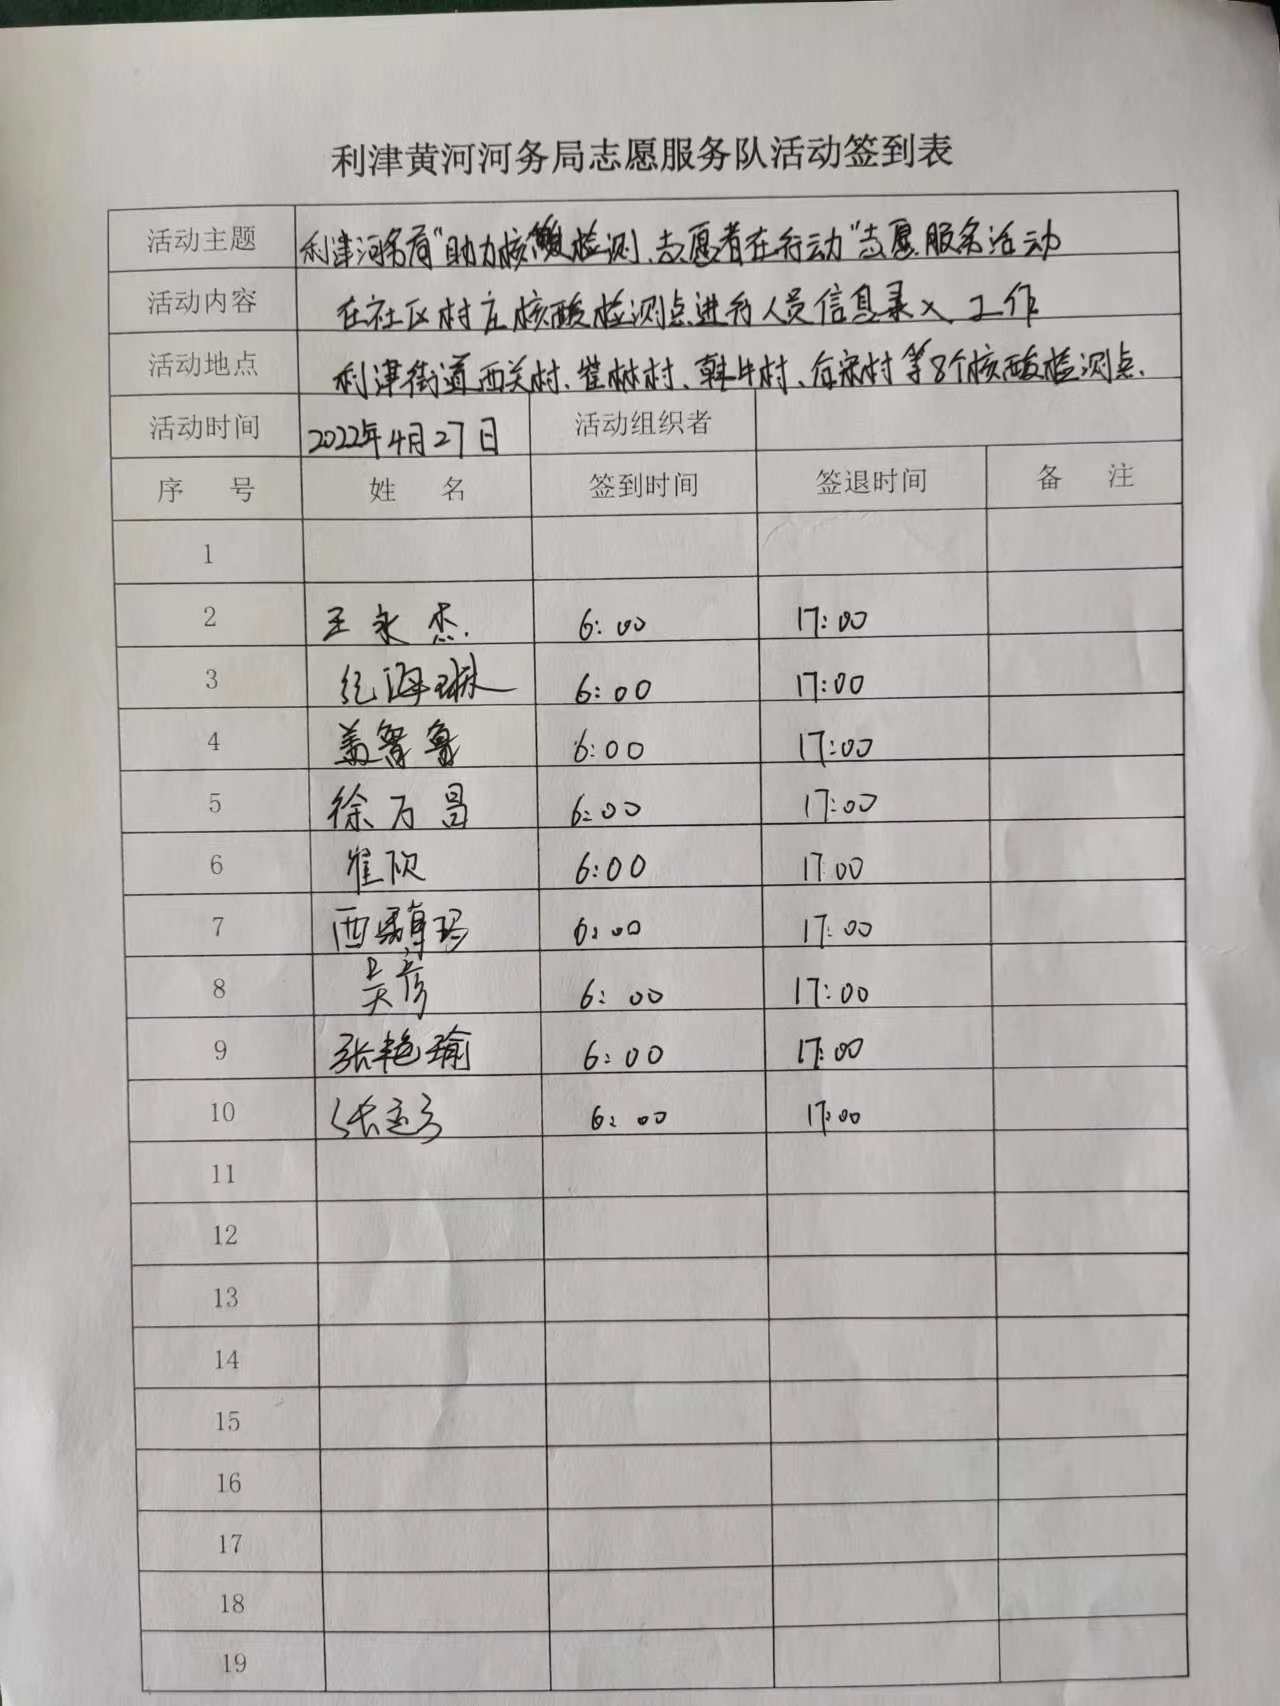 利津黄河河务局志愿服务队活动签到表
活动主题 利津河务局“助力核酸检测、志愿者在行动”志愿服务活动
活动内容 在社区村庄核酸检测点进行人员信息录入工作
活动地点 利津街道西关村、崔林村、韩牛村、后宋村等8个核酸检测点.
活动时间 2022年4月27日 活动组织者
序 号 姓 名 签到时间 签退时间 备 注
1
2 王永杰 6:00 17:00
3 纪海琳 6:00 17:00
4 盖智鲁 6:00 17:00
5 徐万昌 6:00 17:00
6 崔欣 6:00 17:00
7 西 6:00 17:00
8 吴彦 6:00 17:00
9 张艳瑜 6:00 17:00
10 张 6:00 17:00
11
12
13
14
15
16
17
18
19